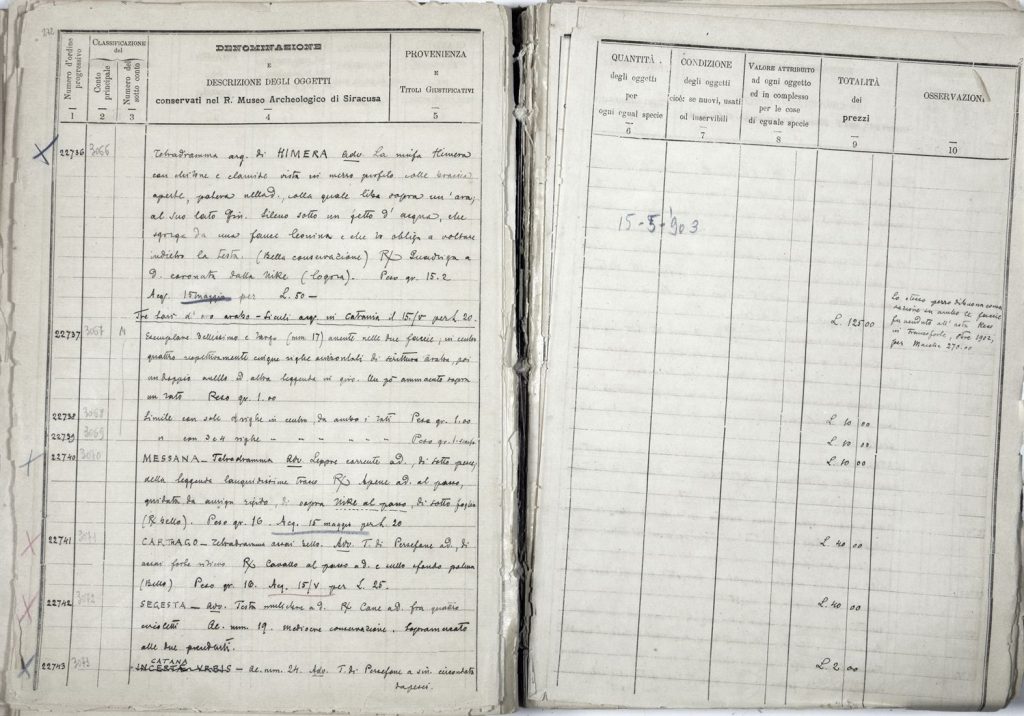 272
Numero d'ordine progressivo
1
CLASSIFICAZIONE
del
Conto principale
2
Numero del sotto conto
3
DENOMINAZIONE
E
DESCRIZIONE DEGLI OGGETTI
conservati nel R. Museo Archeologico di Siracusa
4
PROVENIENZA
E
TITOLI GIUSTIFICATIVI
5
22736 3066 Tetradramma arg. di HIMERA Adv. La ninfa Himera
con chitone e clamide vista in mezzo profilo colle braccia
aperte, patera nella d., colla quale liba sopra un'ara;
al suo lato Sileno sotto un getto d'acqua, che
sgorga da una fauce leonina e che lo obliga a voltare
indietro la testa. (Bella conservazione) R/ Quadriga a
d. coronata dalla Nike (logora). Peso gr. 15.2
Acq. 15 maggio per L. 50 —
Tre d'oro arabo-siculi acq. in Catania il 15/V per L. 20.
22737 3067 Esemplare bellissimo e largo (mm 17) avente nelle due faccie, in centro
quattro rispettivamente cinque righe orizzontali di scrittura araba, poi
un doppio anello ed altra leggenda in giro. Un pò ammaccato sopra
un lato Peso gr. 1.00
22738 3068 Simile con sole righe in centro da ambo i lati Peso gr. 1.00
22739 3069 " con 3 e 4 righe " " " " " " Peso gr. 1
22740 3070 MESSANA — Tetradramma Adv. Lepre corrente a d., di sotto
della leggenda languidissime tracce R/ Apene a d. al passo,
guidata da auriga, di sopra Nike al passo, di sotto foglia
(R/ bello). Peso gr. 16. Acq. 15 maggio per L. 20
22741 3071 CARTHAGO — Tetradramma assai bello. Adv. T. di Persefone a d., di
assai forte rilievo R/ Cavallo al passo a d. e sullo sfondo palma
(Bello) Peso gr. 16. Acq. 15/V per L. 25.
22742 3072 SEGESTA — Adv. Testa muliebre a d. R/ Cane a d. fra quattro
circoletti Ae. mm. 19. mediocre conservazione. Sopramercato
alle due precedenti.
CATANA
22743 3073 INCESTA VRBIS — Ae. mm. 24. Adv. T. di Persefone a sin. circondata
da pesci.
QUANTITÀ
degli oggetti
per
ogni egual specie
6
CONDIZIONE
degli oggetti
cioè: se nuovi, usati
od inservibili
7
VALORE ATTRIBUITO
ad ogni oggetto
ed in complesso
per le cose
di eguale specie
8
TOTALITÀ
dei
prezzi
9
OSSERVAZION
10
15-5-903
L. 125 00
Lo stesso pezzo di buona conser
vazione su ambo le faccie
fu venduto all'asta
in Francoforte, 1902,
per Marchi 270.00
L. 10 00
L. 10 00
L. 10 00
L. 40 00
L. 40 00
L. 2 00